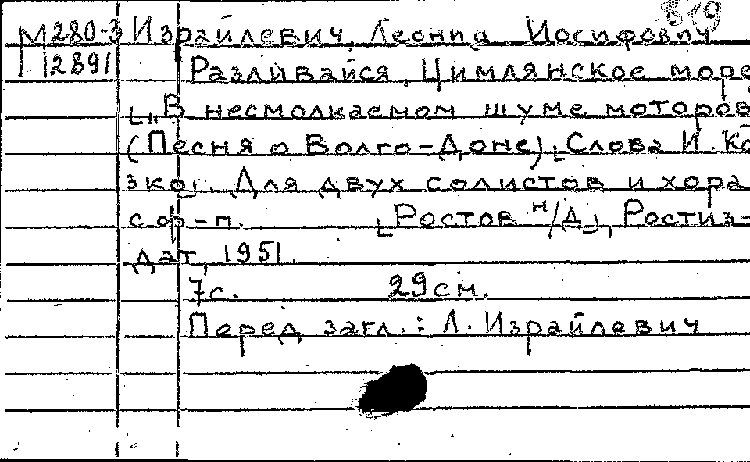 819
М280-3 Израйлевич, Леонид Иосифович
12891 Разливайся, Цимлянское море
[„В несмолкаемом шуме моторов
(Песня о Волго-Доне)[Слова И. Ко-
зко]. Для двух солистов и хора
с ф-п. [Ростов н/Д], Ростиз-
дат, 1951.
7с. 29см.
Перед загл.: Л. Израйлевич